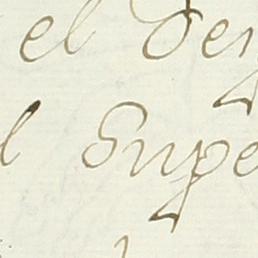 el Seg
l Supe